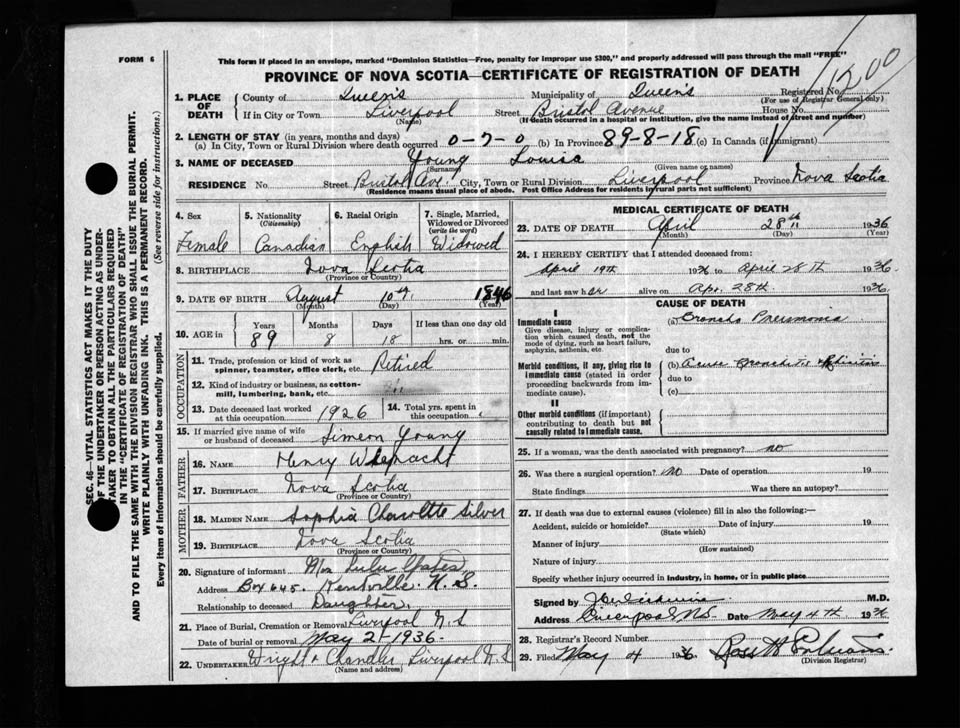 FORM 6
This form if placed in an envelope, marked "Dominion Statistics—Free, penalty for improper use $300," and properly addressed will pass through the mail "FREE"
PROVINCE OF NOVA SCOTIA—CERTIFICATE OF REGISTRATION OF DEATH
1200
1. PLACE OF DEATH
County of Queen's Municipality of Queen's Registered No.
(For use of Registrar General only)
If in City or Town Liverpool Street Bristol Avenue House No.
(Name) (If death occurred in a hospital or institution, give the name instead of street and number)
2. LENGTH OF STAY (in years, months and days)
(a) In City, Town or Rural Division where death occurred 0-7-0 (b) In Province 89-8-18 (c) In Canada (if immigrant)
3. NAME OF DECEASED Young Louisa
(Surname) (Given name or names)
RESIDENCE No. Street Bristol Ave. City, Town or Rural Division Liverpool Province Nova Scotia
(Residence means usual place of abode. Post Office Address for residents in rural parts not sufficient)
4. Sex Female
5. Nationality (Citizenship) Canadian
6. Racial Origin English
7. Single, Married, Widowed or Divorced (write the word) Widowed
8. BIRTHPLACE Nova Scotia
(Province or Country)
9. DATE OF BIRTH August 10th 1846
(Month) (Day) (Year)
10. AGE in Years 89 Months 8 Days 18 If less than one day old hrs. or min.
OCCUPATION
11. Trade, profession or kind of work as spinner, teamster, office clerk, etc. Retired
12. Kind of industry or business, as cotton-mill, lumbering, bank, etc. "
13. Date deceased last worked at this occupation 1926
14. Total yrs. spent in this occupation
15. If married give name of wife or husband of deceased Simeon Young
FATHER
16. NAME Henry
17. BIRTHPLACE Nova Scotia
(Province or Country)
MOTHER
18. MAIDEN NAME Sophia Charlotte Silver
19. BIRTHPLACE Nova Scotia
(Province or Country)
20. Signature of informant Mrs Lulu
Address Box 645. Kentville. N.S.
Relationship to deceased Daughter.
21. Place of Burial, Cremation or Removal Liverpool N.S
Date of burial or removal May 2-1936
22. UNDERTAKER Wright & Chandler, Liverpool N.S
(Name and address)
MEDICAL CERTIFICATE OF DEATH
23. DATE OF DEATH April 28th 1936
(Month) (Day) (Year)
24. I HEREBY CERTIFY that I attended deceased from:
April 19th 1936 to April 28th 1936
and last saw her alive on Apr. 28th 1936
CAUSE OF DEATH
I
Immediate cause
Give disease, injury or complication which caused death, not the mode of dying, such as heart failure, asphyxia, asthenia, etc.
(a) Broncho Pneumonia
due to
Morbid conditions, if any, giving rise to immediate cause (stated in order proceeding backwards from immediate cause).
(b) Bronchitis
due to
(c)
II
Other morbid conditions (if important) contributing to death but not causally related to immediate cause.
25. If a woman, was the death associated with pregnancy? no
26. Was there a surgical operation? no Date of operation 19
State findings Was there an autopsy?
27. If death was due to external causes (violence) fill in also the following:—
Accident, suicide or homicide? Date of injury 19
(State which)
Manner of injury
(How sustained)
Nature of injury
Specify whether injury occurred in industry, in home, or in public place
Signed by M.D.
Address Liverpool N.S. Date May 4th 1936
28. Registrar's Record Number
29. Filed May 4 1936 Ross H
(Division Registrar)
SEC. 46—VITAL STATISTICS ACT MAKES IT THE DUTY
OF THE UNDERTAKER OR PERSON ACTING AS UNDER-
TAKER TO OBTAIN ALL THE PARTICULARS REQUIRED
IN THE "CERTIFICATE OF REGISTRATION OF DEATH"
AND TO FILE THE SAME WITH THE DIVISION REGISTRAR WHO SHALL ISSUE THE BURIAL PERMIT.
WRITE PLAINLY WITH UNFADING INK. THIS IS A PERMANENT RECORD.
Every item of information should be carefully supplied. (See reverse side for instructions.)